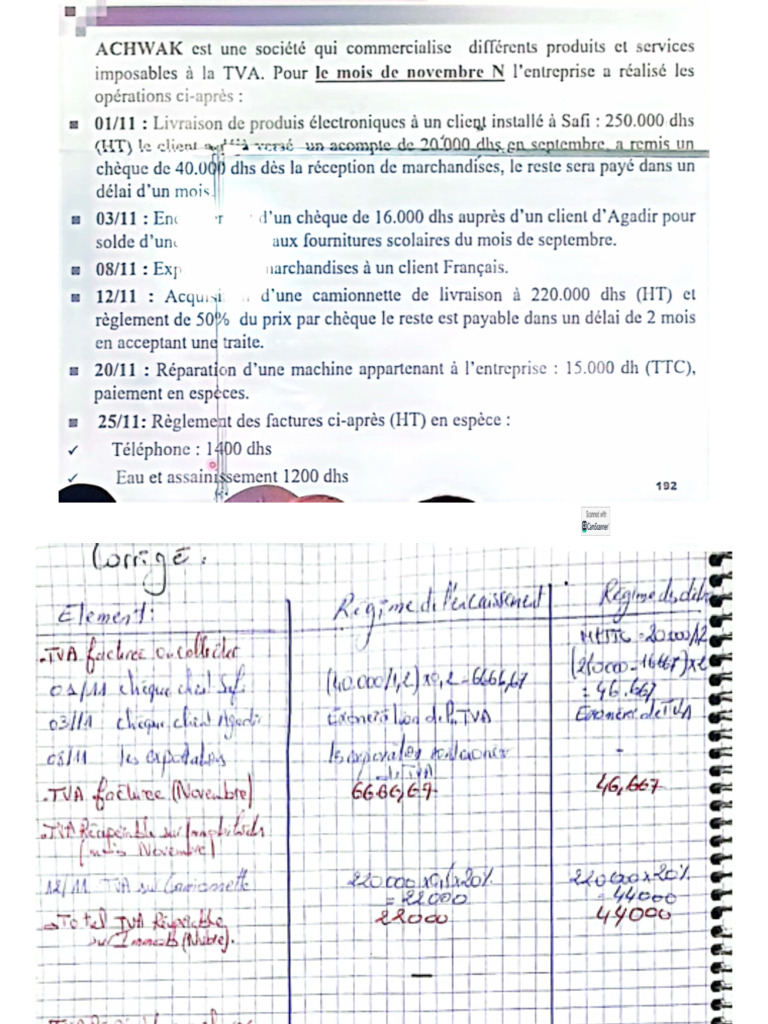 ACHWAK est une société qui commercialise différents produits et services
imposables à la TVA. Pour le mois de novembre N l'entreprise a réalisé les
opérations ci-après :
01/11 : Livraison de produis électroniques à un client installé à Safi : 250.000 dhs
(HT) le client versé un acompte de 20.000 dhs en septembre, a remis un
chèque de 40.000 dhs dès la réception de marchandises, le reste sera payé dans un
délai d'un mois.
03/11 : d'un chèque de 16.000 dhs auprès d'un client d'Agadir pour
solde aux fournitures scolaires du mois de septembre.
08/11 : à un client Français.
12/11 : d'une camionnette de livraison à 220.000 dhs (HT) et
règlement de 50% du prix par chèque le reste est payable dans un délai de 2 mois
en acceptant une traite.
20/11 : Réparation d'une machine appartenant à l'entreprise : 15.000 dh (TTC),
paiement en espèces.
25/11: Règlement des factures ci-après (HT) en espèce :
✓ Téléphone : 1400 dhs
✓ Eau et assainissement 1200 dhs
192
Scanned with
CamScanner
Corrigé :
Element : Régime de l'encaissement Régime de
.TVA facturée ou collectée
01/11 chèque client Safi (40.000/1,2)x0,2=6666,67 = 46.667
03/11 chèque client Agadir Exonération de la TVA Exonéré de TVA
08/11 les exportations les -
de TVA
.TVA facturée (Novembre) 6666,67 46,667
.TVA Récupérable sur
(mois Novembre)
12/11 TVA sur Camionnette 220000x0,5x20% 220000x20%
= 22000 = 44000
Total TVA 22000 44000
sur